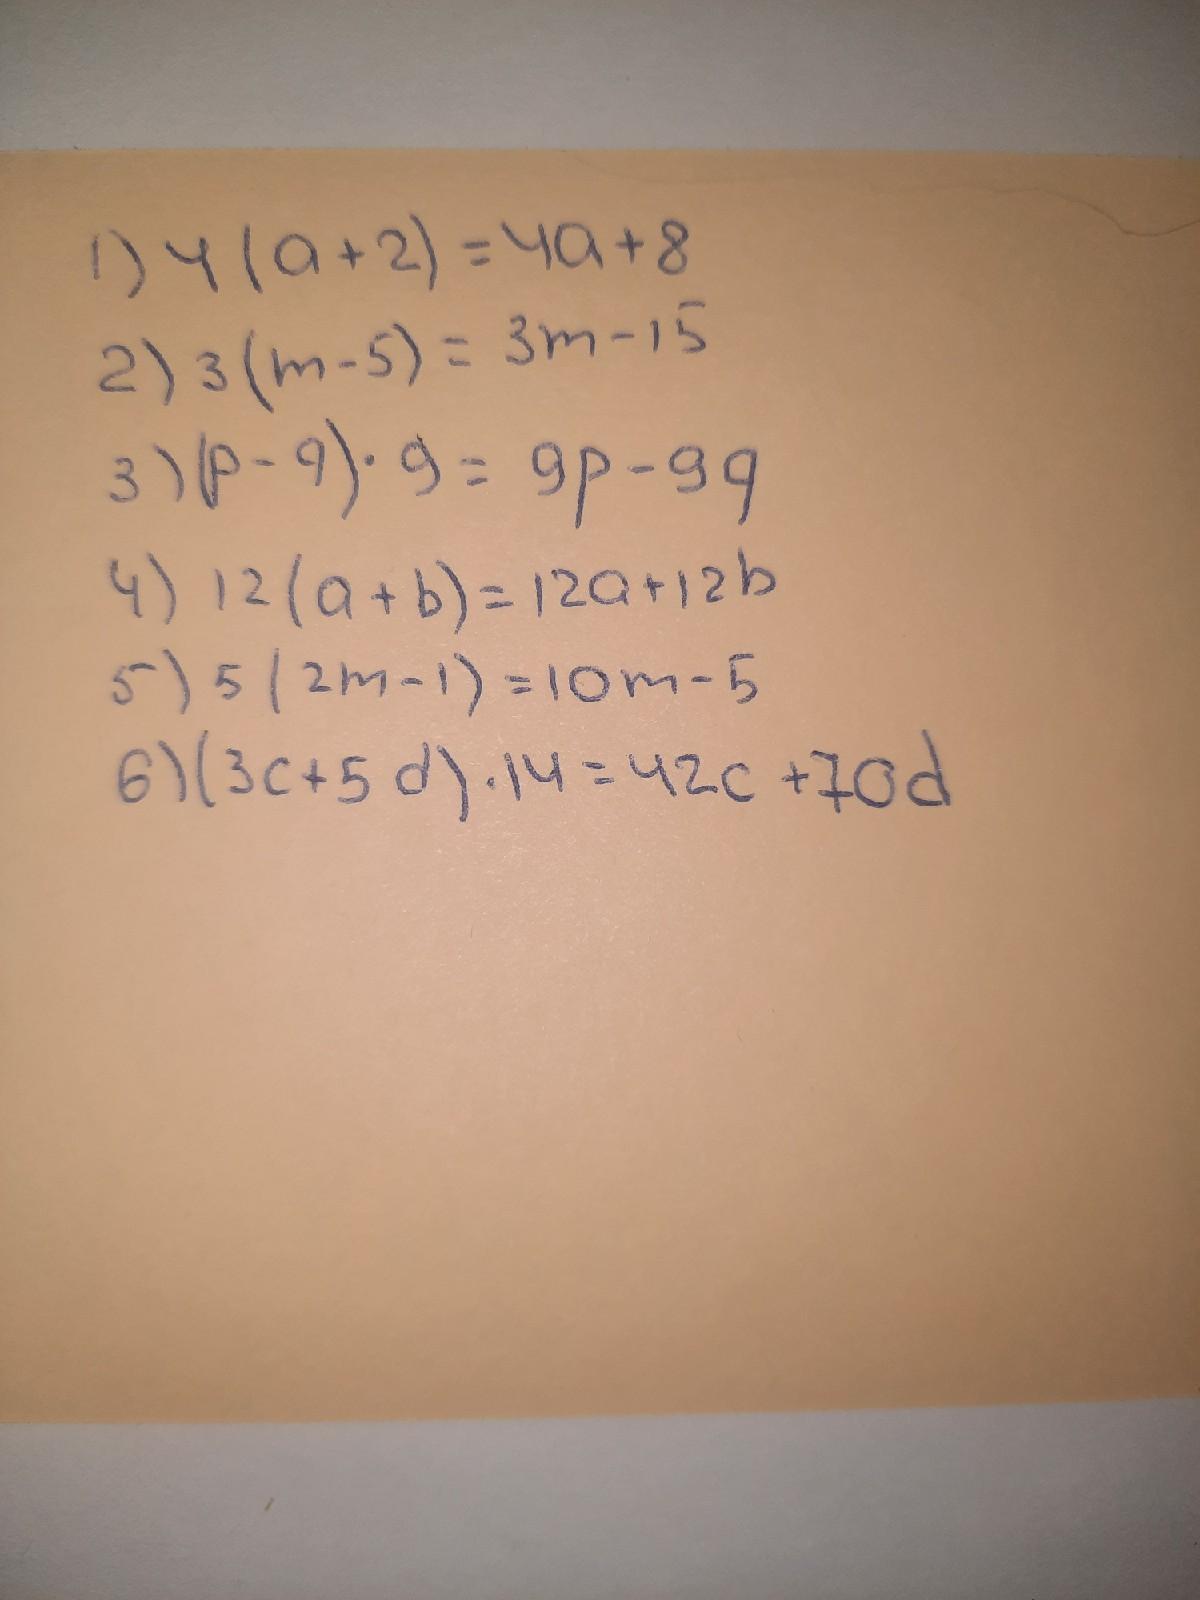 1) 4(a+2)=4a+8
2) 3(m-5)= 3m-15
3) (p-q)·9= 9p-9q
4) 12(a+b)=12a+12b
5) 5(2m-1)=10m-5
6) (3c+5d)·14=42c+70d